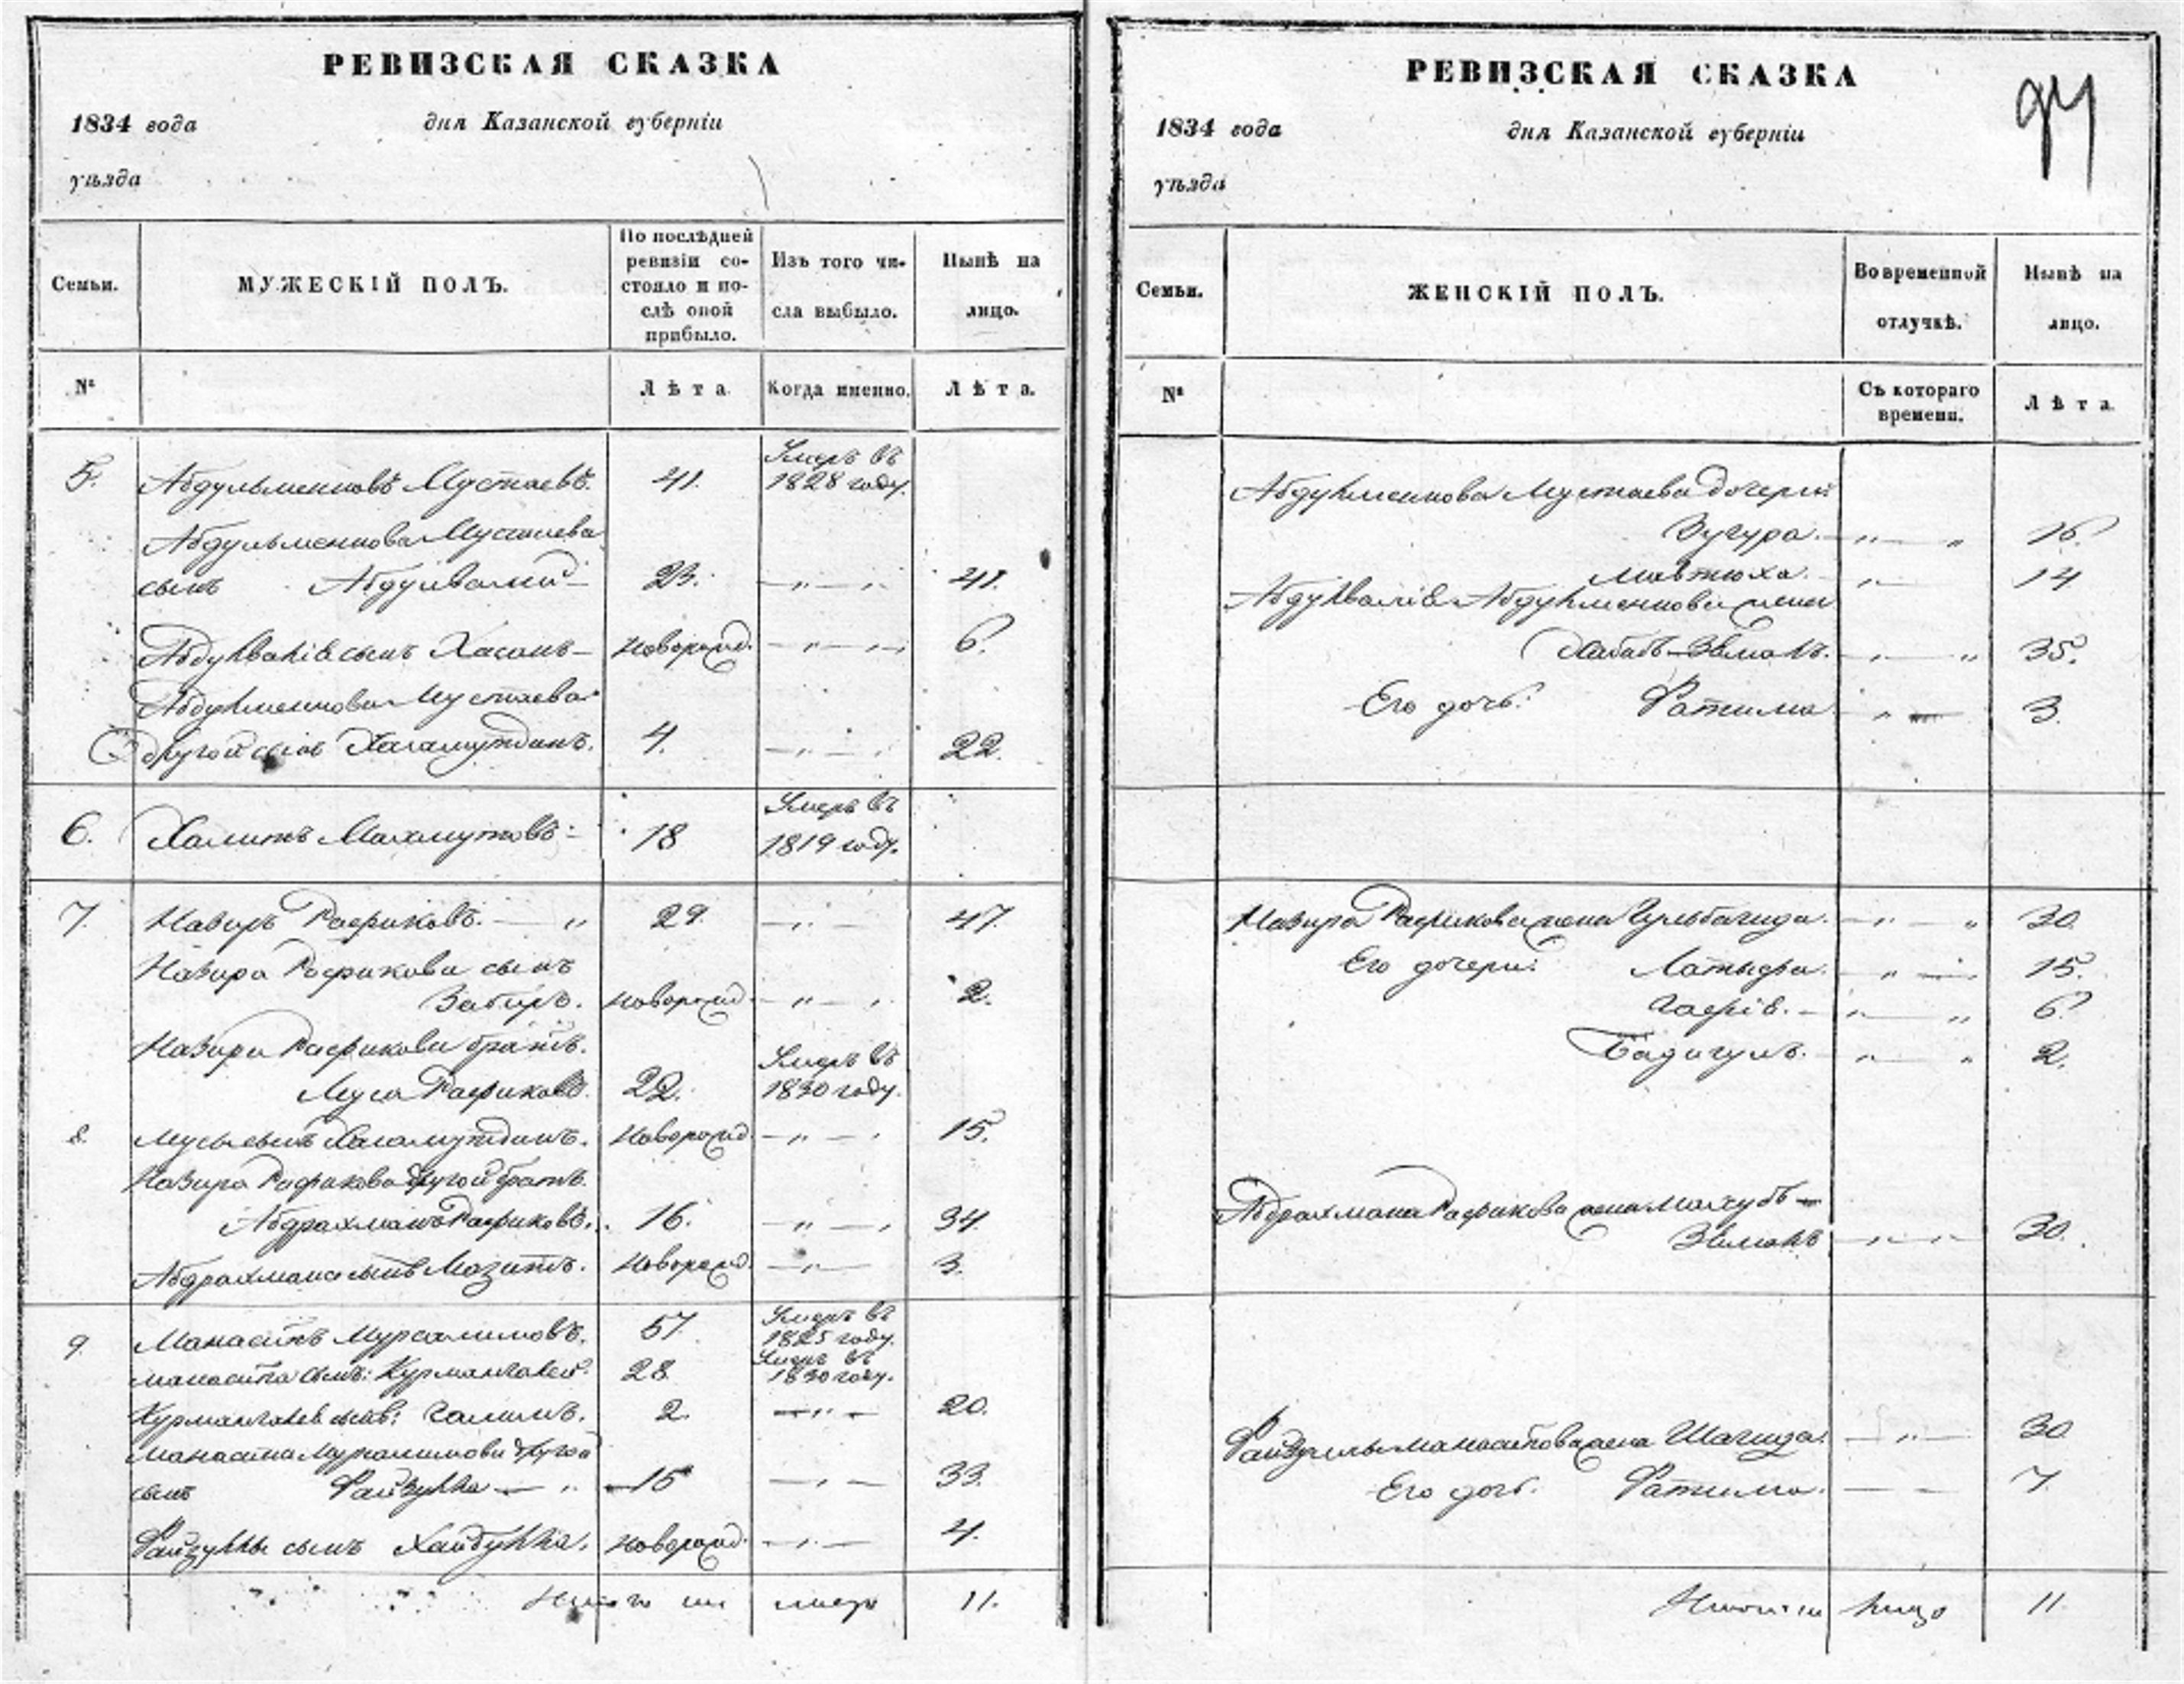 РЕВИЗСКАЯ СКАЗКА
1834 года дня Казанской губерніи
уѣзда
Семьи.
МУЖЕСКІЙ ПОЛЪ.
По послѣдней
ревизіи со-
стояло и по-
слѣ оной
прибыло.
Изъ того чи-
сла выбыло.
Нынѣ на
лицо.
№
Лѣта
Когда именно.
Лѣта.
Умеръ въ
5. Абдульменновъ Мустаевъ. 41. 1828 году.
Абдульменнова Мустаева
сынъ Абдулвалий 23. 41.
Абдулвалія сынъ Хасанъ Новорожд. 6.
Абдулменнова Мустаева
другой сынъ Хасамутдинъ. 4. 22.
Умеръ въ
6. Халитъ Махмутовъ 18 1819 году.
7. Назиръ Рафиковъ. 29. 47.
Назира Рафикова сынъ
Забиръ. Новорожд 2.
Назира Рафикова братъ.
Умеръ въ
Муса Рафиковъ. 22. 1830 году.
8. Мусы сынъ Хасамутдинъ. Новорожд 15.
Назира Рафикова другой братъ
Абдрахманъ Рафиковъ. 16. 34.
Абдрахмана сынъ Мазитъ. Новорожд 3.
Умеръ въ
9. Манаситъ Мурсалимовъ. 57. 1825 году.
Умеръ въ
Манасита сынъ: Курмангалей. 28. 1830 году.
Курмангалея сынъ: Галимъ. 2. 20.
Манасита Мурсалимова другой
сынъ Файзулла 15 33.
Файзуллы сынъ Хайбулла. Новорожд. 4.
Итого на лицо 11.
РЕВИЗСКАЯ СКАЗКА
1834 года дня Казанской губерніи
уѣзда
Семьи.
ЖЕНСКІЙ ПОЛЪ.
Во временной
отлучкѣ.
Нынѣ на
лицо.
№
Съ котораго
времени.
Лѣта
Абдулменнова Мустаева дочери:
Зугура. 16.
Мавтюха. 14
Абдулвалія Абдулменнова жена
35.
Его дочь: Фатима 3.
Назира Рафикова жена Гульбагида. 30.
Его дочери: Латыфа. 15.
Гафія. 6.
Бадигулъ. 2.
Абдрахмана Рафикова жена Махубъ
Зямалъ 30.
Файзуллы Манаситова жена Шагида. 30
Его дочь. Фатима. 7.
Итого на лицо 11